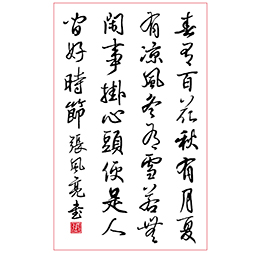 春有百花秋有月夏
有凉風冬有雪若無
閑事掛心頭便是人
間好時節 張風亮書